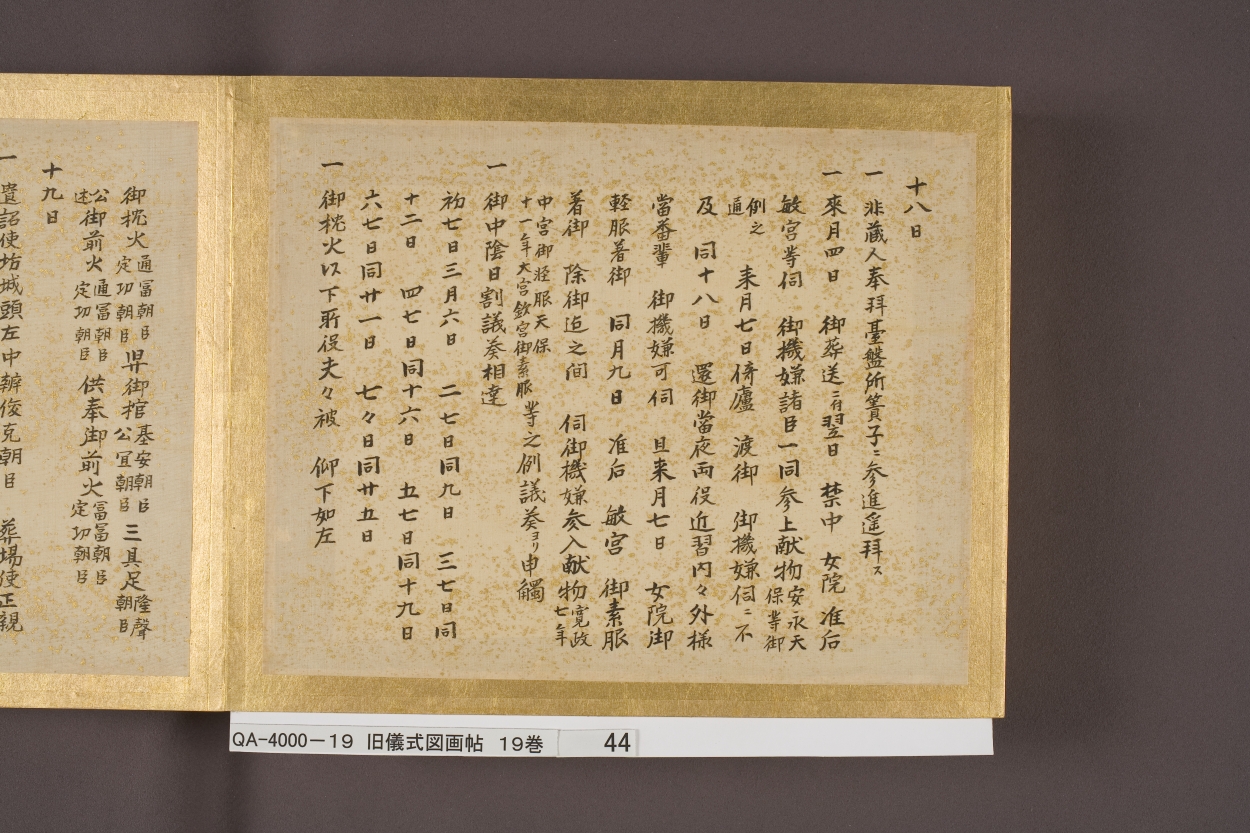 十八日
一 非蔵人奉拜臺盤所簀子ニ参進遥拜ス
一 來月四日 御葬送ニ付翌日 禁中 女院 准后
敏宮等伺 御機嫌諸臣一同参上献物安永天保等御
例之通 来月七日倚廬 渡御 御機嫌伺ニ不
及 同十八日 還御當夜両役近習内々外様
當番輩 御機嫌可伺 且来月七日 女院御
軽服著御 同月九日 准后 敏宮 御素服
著御 除御迠之间 伺御機嫌参入献物寛政七年
中宮御軽服天保十一年大宮欽宮御素服等之例議奏ヨリ申觸
一 御中陰日割議奏相達
初七日三月六日 二七日同九日 三七日同
十二日 四七日同十六日 五七日同十九日
六七日同廿一日 七々日同廿五日
一 御枕火以下所役夫々被 仰下如左
御枕火通冨朝臣定功朝臣舁御棺基安朝臣公冝朝臣三具足隆聲朝臣
御前火通冨朝臣定功朝臣供奉御前火冨朝臣定功朝臣
十九日
一 遺詔使坊城頭左中辨俊克朝臣 葬場使正親
QA-4000-19 旧儀式図画帖 19巻 44